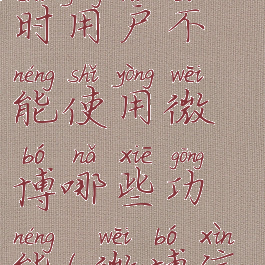 时用户不
néng shǐ yòng wēi
能使用微
bó nǎ xiē gōng
博哪些功
néng wēi bó xìn